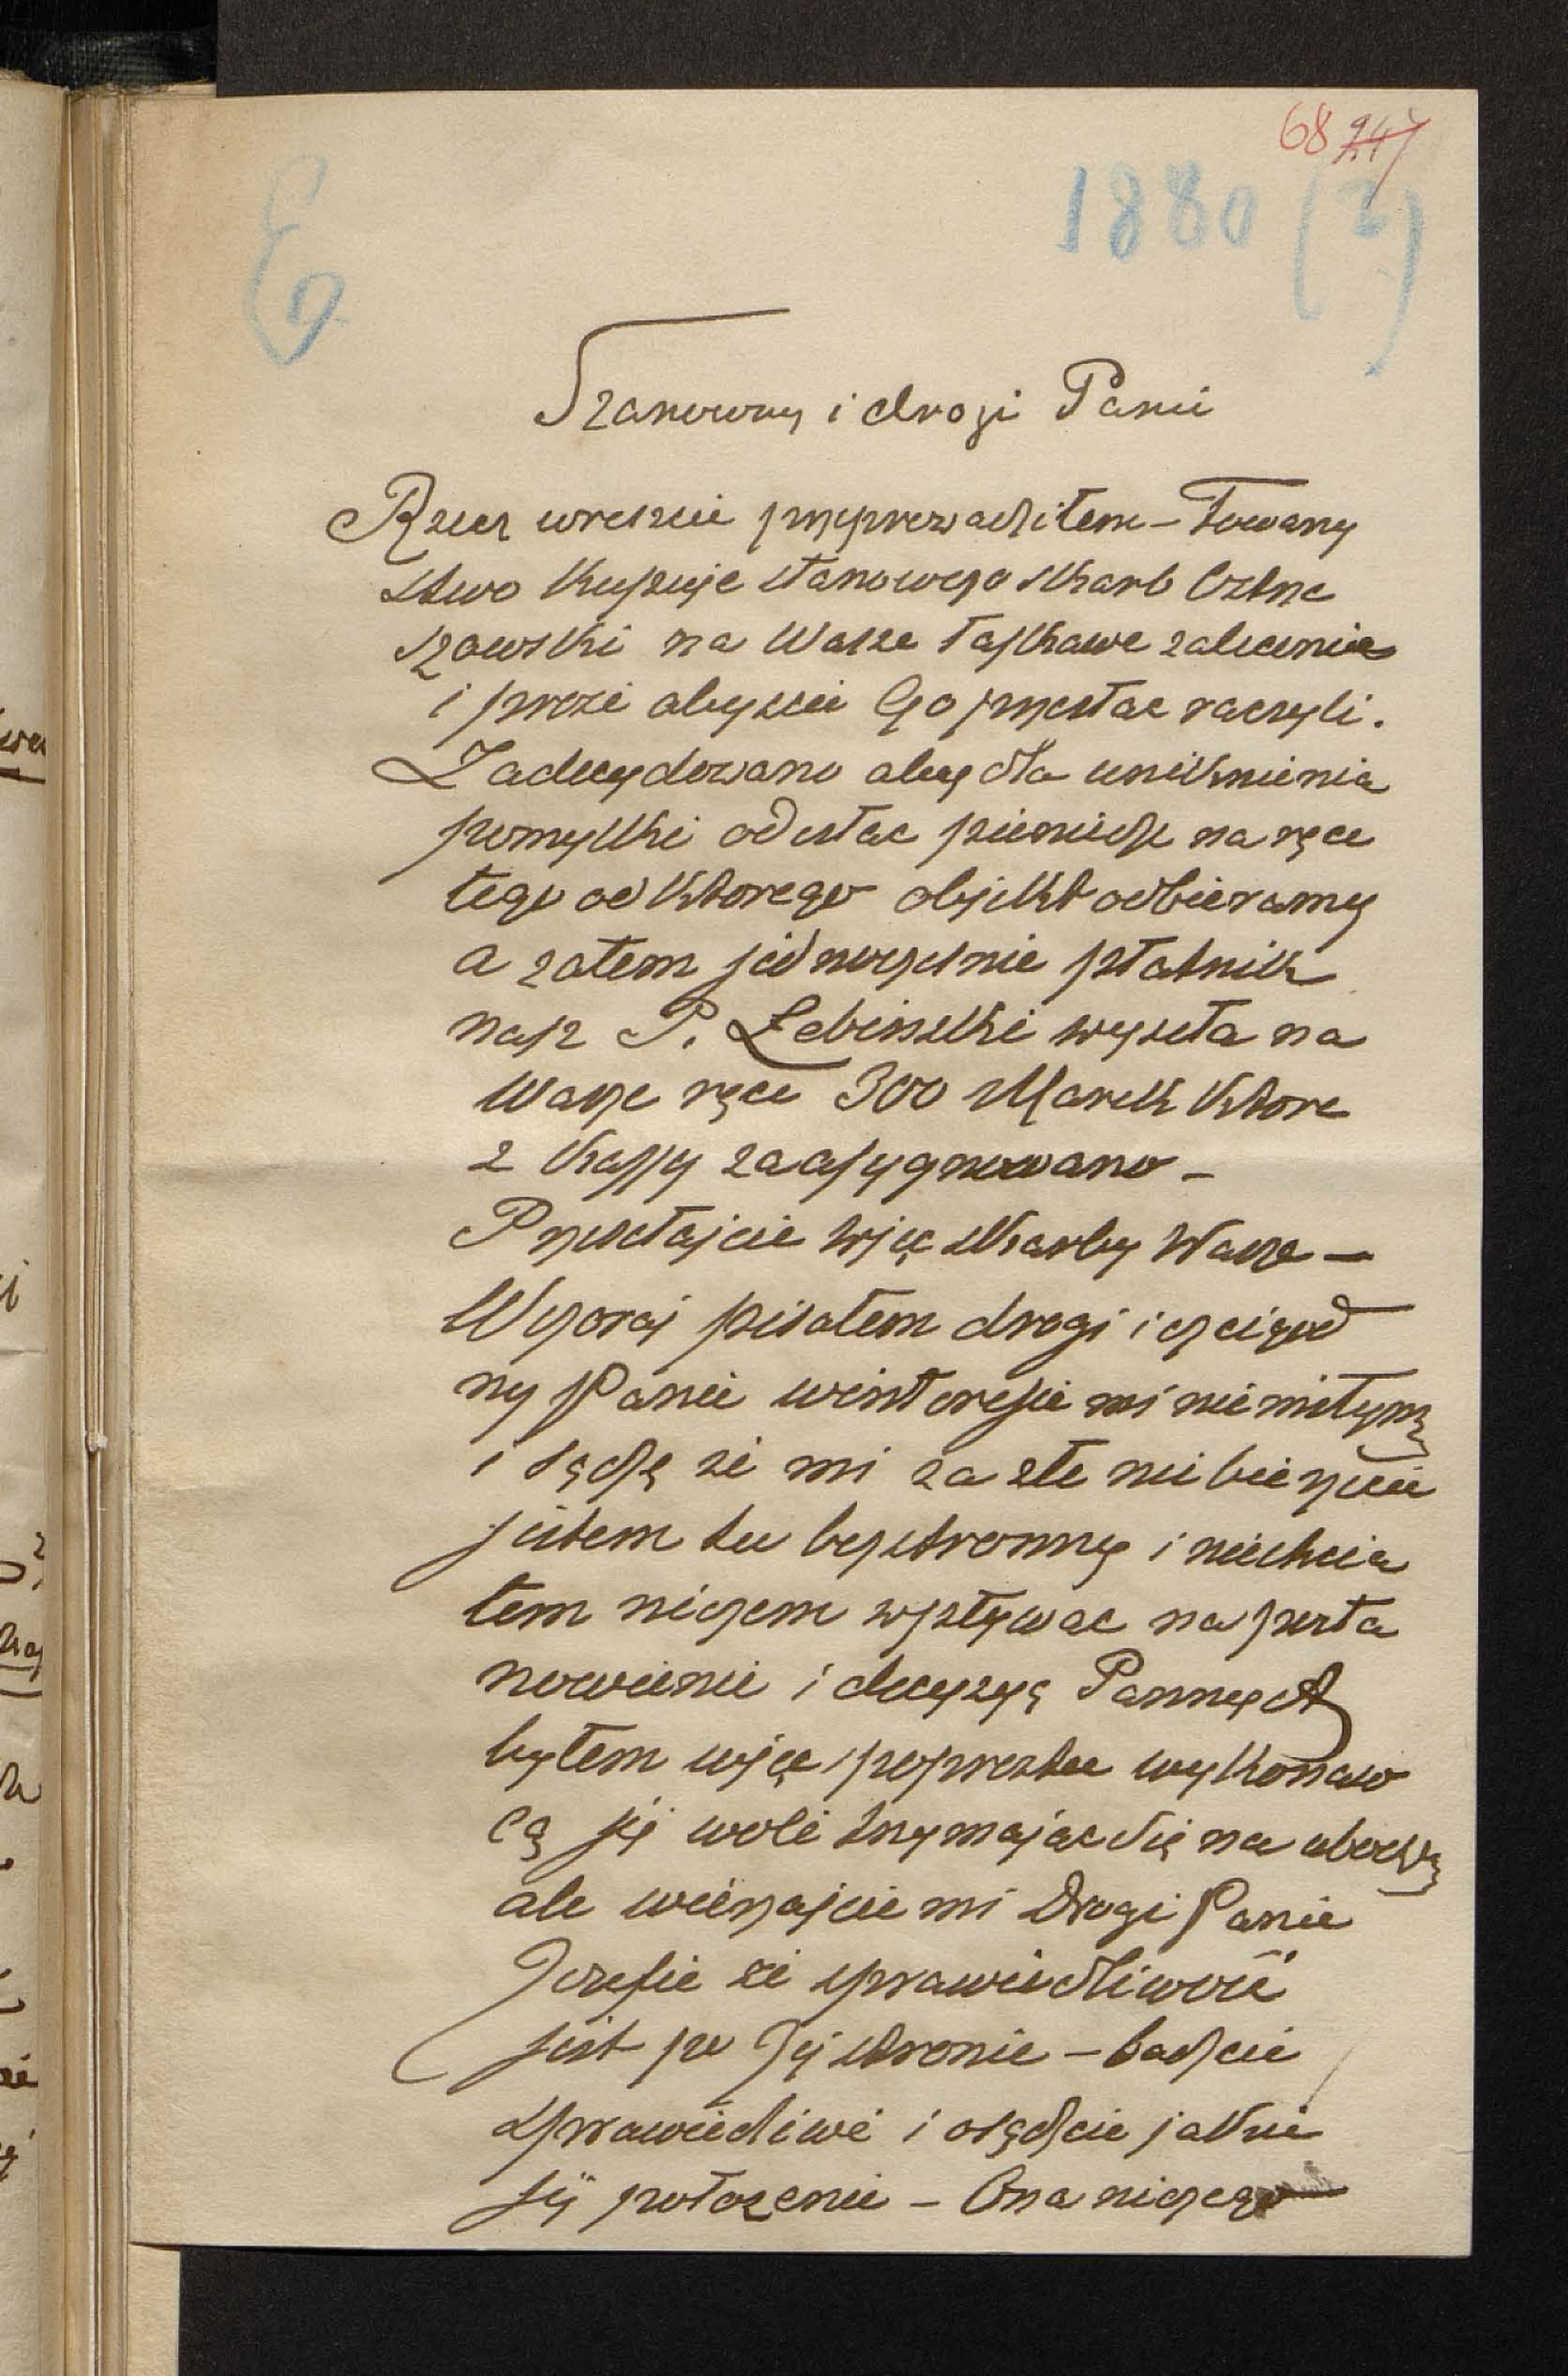 68 247
1880 (?)
E
Szanowny i drogi Panie
Rzecz wreszcie przyprowadziłem – Towarzy
stwo kupuje stanowczo skarb
szowski na Wasze łaskawe zalecenie
i prosi abyscie Go przysłac raczyli.
Zadecydowano aby dla uniknienia
pomyłki odsłac pieniądze na ręce
tego od ktorego objekt odbieramy
a zatem jednocześnie płatnik
nasz P. Łebinski wyseła na
Wasze ręce 300 Marek ktore
z kassy zaasygnowano –
Przysełajcie więc skarby Wasze –
Wczoraj pisałem drogi i czcigod
ny Panie w interesie mi niemiłym
i sądzę że mi za złe nie bierzecie
jestem tu bezstronny i niechcia
łem niczem wpływac na posta
nowienie i decyzyą Panny A
byłem więc poprostu wykonaw
cą jej woli trzymając się na uboczu
ale wierzajcie mi Drogi Panie
Jozefie że sprawiedliwość
jest po Jej stronie – badzcie
sprawiedliwi i osądzcie jakie
jej położenie – Ona niczego